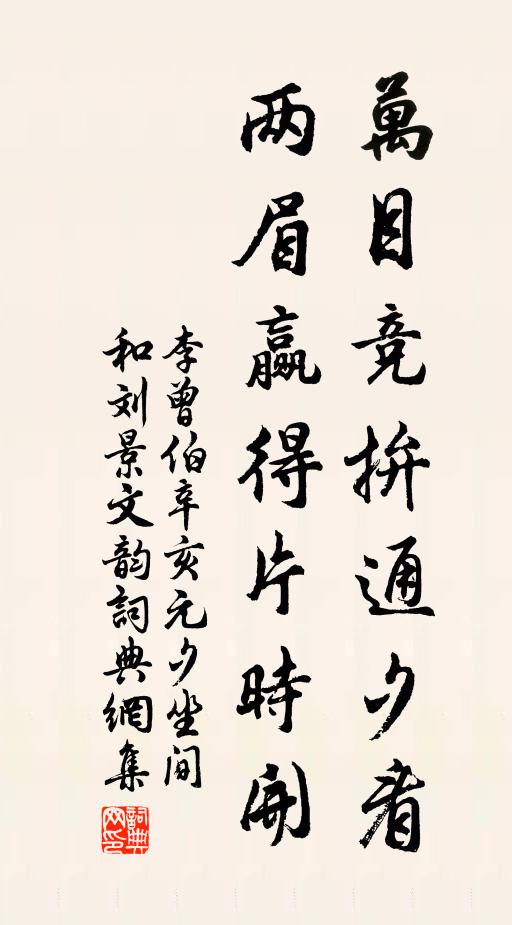 萬目竞拚通夕看
两眉贏得片時開
李曾伯辛亥元夕坐间
和刘景文韵詞典網集
詞典網印